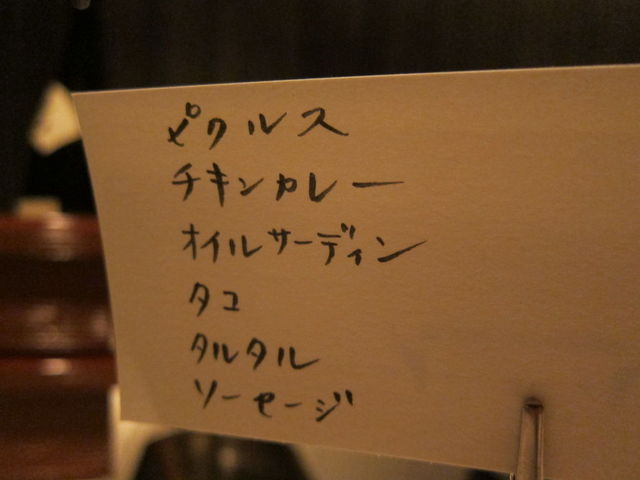 ピクルス
チキンカレー
オイルサーディン
タコ
タルタル
ソーセージ